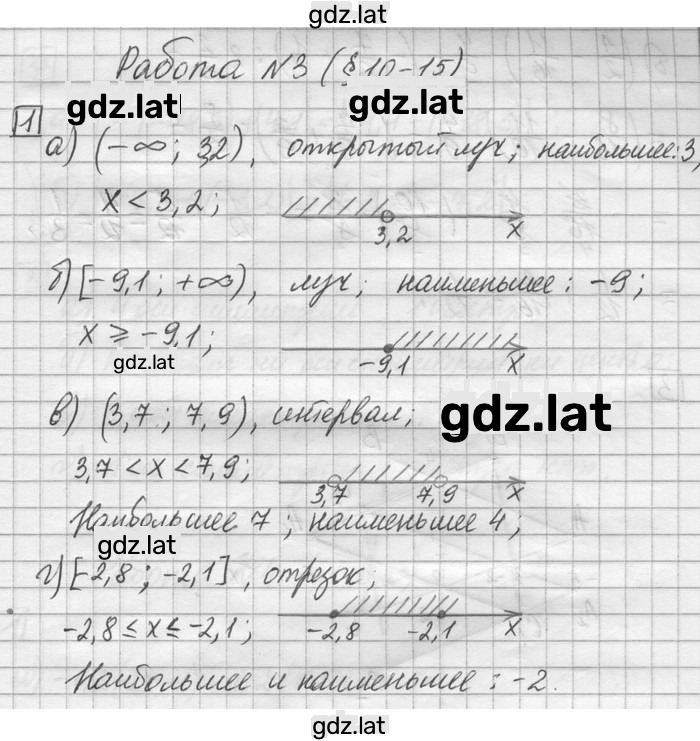 gdz.lat
Работа №3 (§10-15)
gdz.lat gdz.lat
1
а) (-∞; 3,2), открытый луч; наибольшее: 3,
x < 3,2;
3,2 x
б) [-9,1; +∞), луч; наименьшее: -9;
x ⩾ -9,1;
-9,1 x
gdz.lat
gdz.lat
в) (3,7; 7,9), интервал;
3,7 < x < 7,9;
3,7 7,9 x
Наибольшее 7; наименьшее 4;
gdz.lat
г) [-2,8; -2,1], отрезок;
-2,8 ≤ x ≤ -2,1;
-2,8 -2,1 x
Наибольшее и наименьшее: -2.
gdz.lat